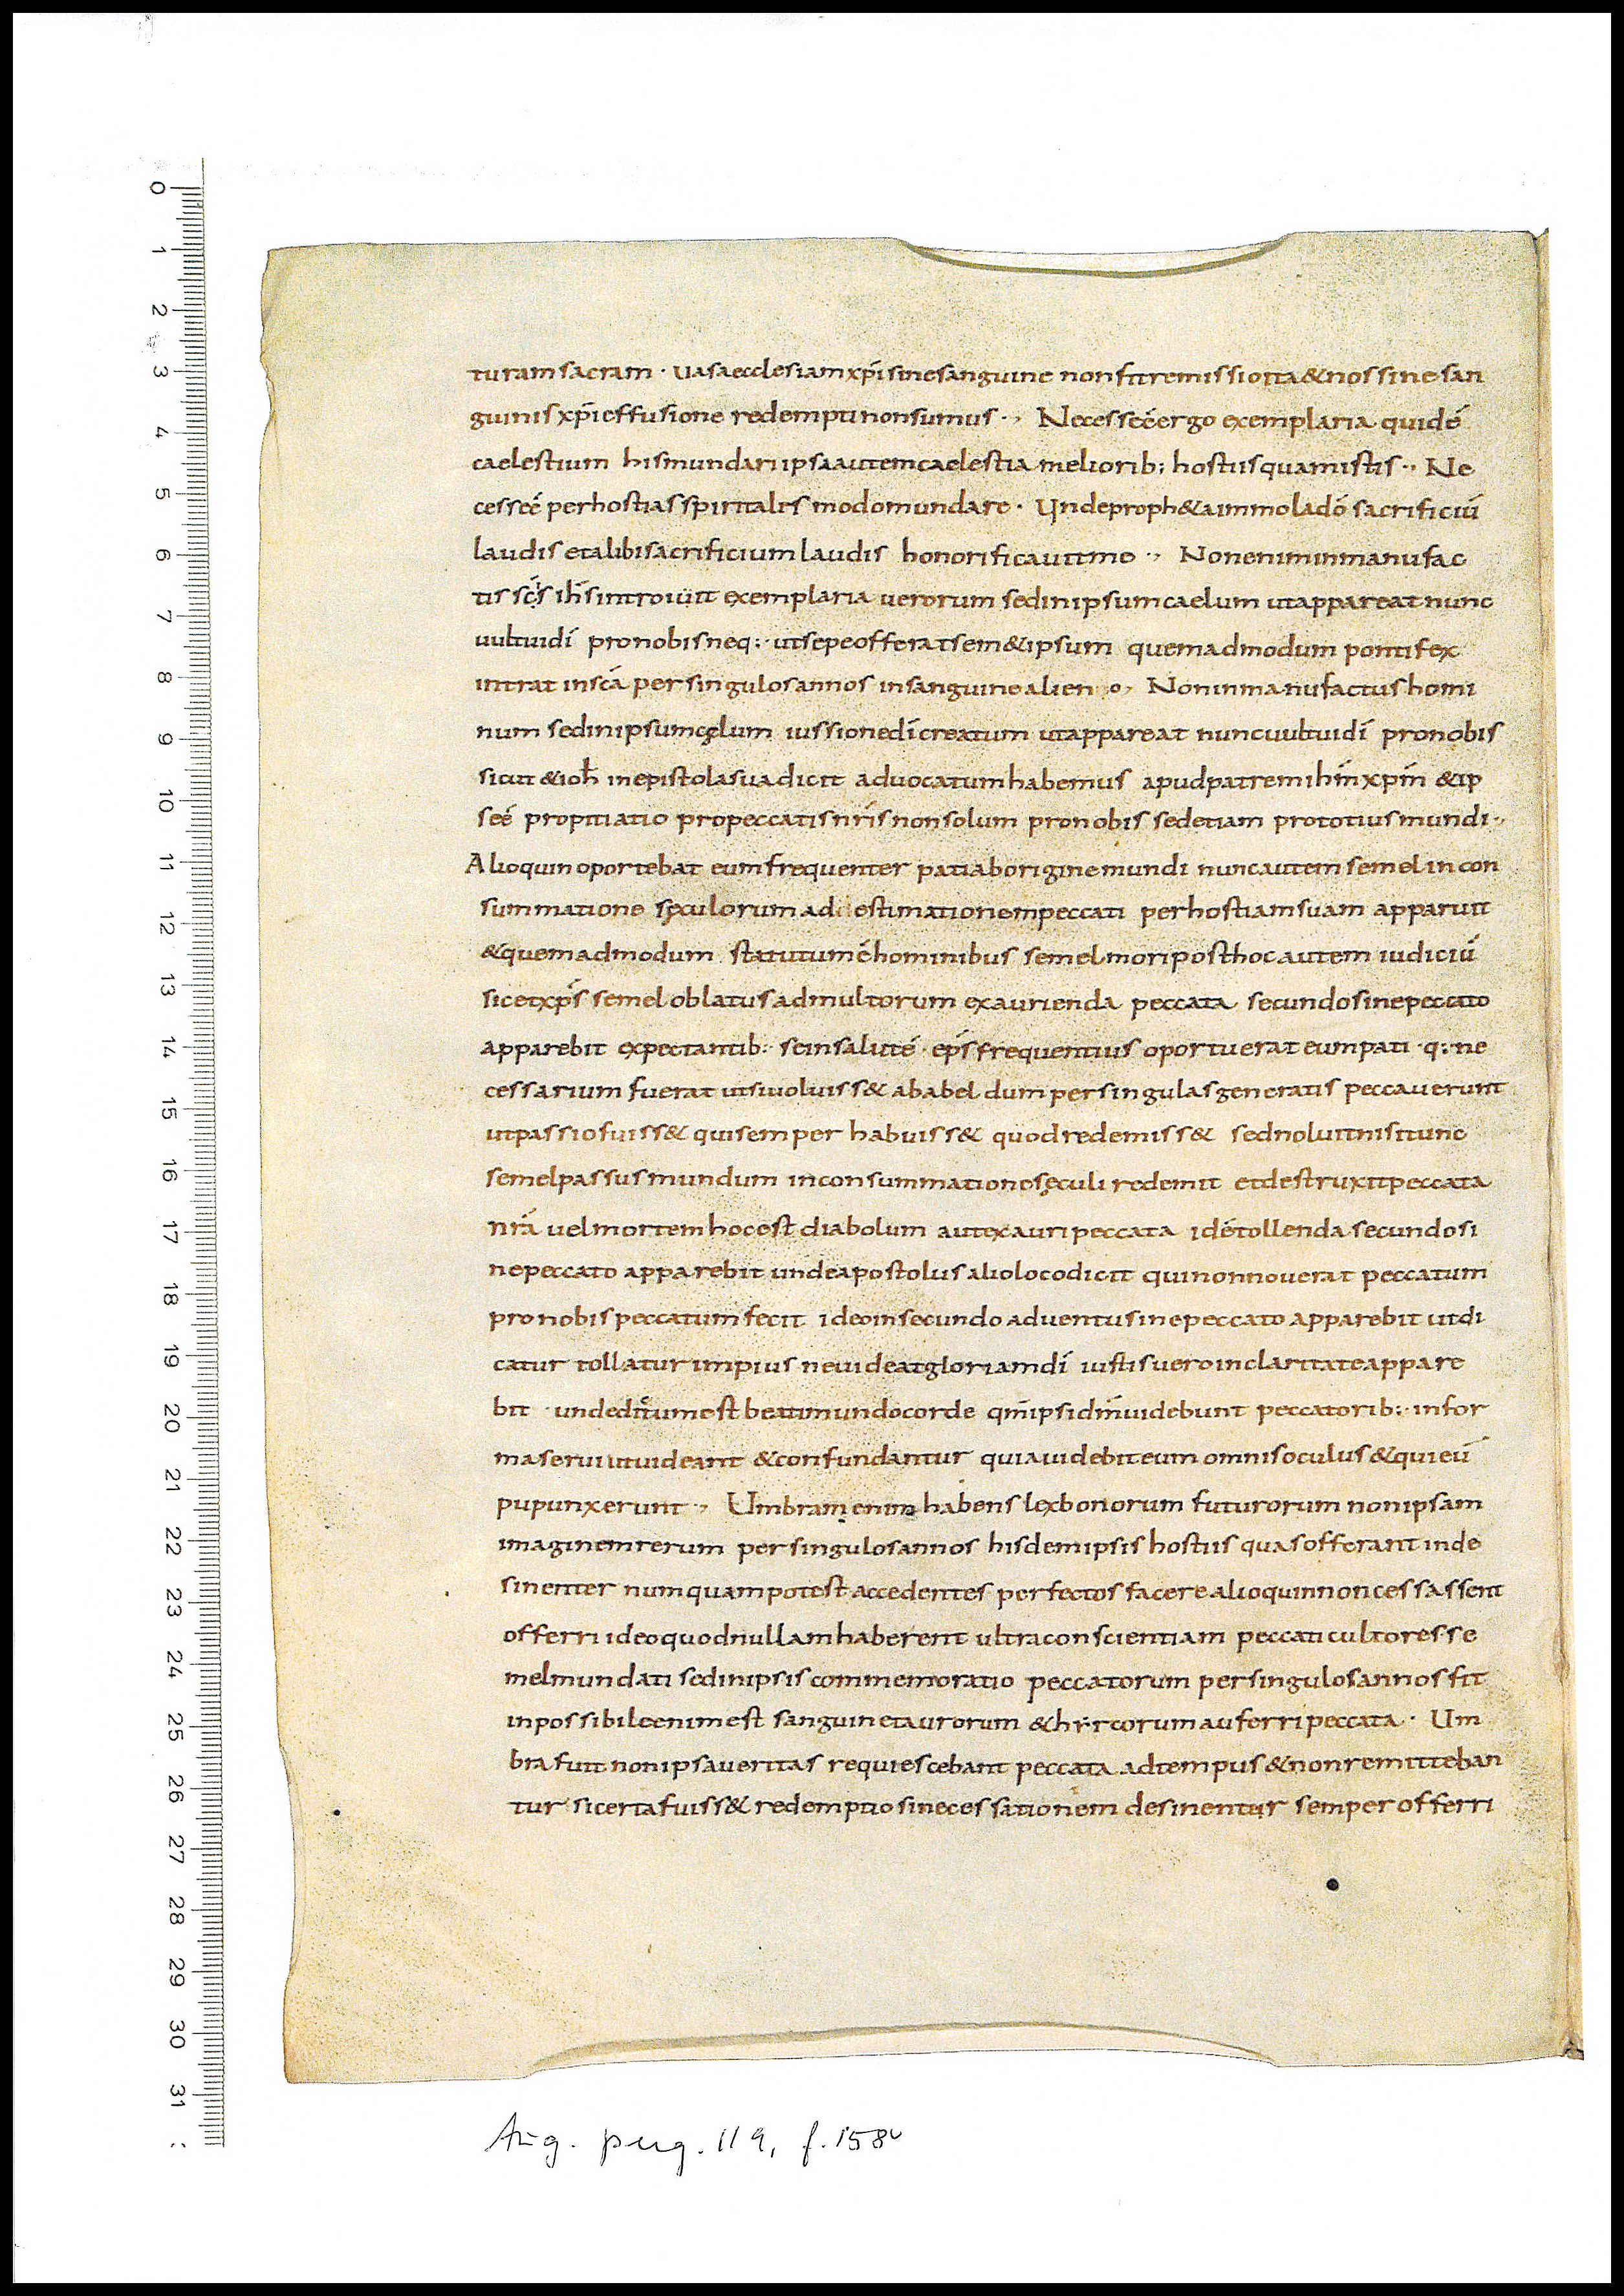 turam sacram · uasa ecclesiam xp̄i sine sanguine non fit remissio ita & nos sine san
guinis xp̄i effusione redempti non sumus ·, Necesse ē ergo exemplaria quidē
caelestium his mundari ipsa autem caelestia meliorib; hostiis quam istis ·, Ne
cesse ē per hostias spiritales modo mundare · Unde proph&a immola dō sacrificiū
laudis et alibi sacrificium laudis honorificauit me ·, Non enim in manufac
tis sc̄s ih̄s introiuit exemplaria uerorum sed in ipsum caelum ut appareat nunc
uultui dī pro nobis neq; ut sepe offerat sem&ipsum quemadmodum pontifex
intrat in sc̄a per singulos annos in sanguine alieno, Non in manufactus homi
num sed in ipsum cęlum iussione dī creatum ut appareat nunc uultui dī pro nobis
sicut & ioh̄ in epistola sua dicit aduocatum habemus apud patrem ih̄m xp̄m & ip
se ē propitiatio pro peccatis nr̄is non solum pro nobis sed etiam pro totius mundi ·,
Alioquin oportebat eum frequenter pati ab origine mundi nunc autem semel in con
summatione sęculorum ad estimationem peccati per hostiam suam apparuit
& quemadmodum statutum ē hominibus semel mori post hoc autem iudiciū
sic et xp̄s semel oblatus ad multorum exaurienda peccata secundo sine peccato
apparebit expectantib; se in salutē · ep̄s frequentius oportuerat eum pati · q; ne
cessarium fuerat ut si uoluiss& ab abel dum per singulas generatis peccauerunt
ut passio fuiss& qui semper habuiss& quod redemiss& sed noluit nisi tunc
semel passus mundum in consummatione sęculi redemit et destruxit peccata
nr̄a uel mortem hoc est diabolum aut exauri peccata id ē tollenda secundo si
ne peccato apparebit unde apostolus alio loco dicit qui non nouerat peccatum
pro nobis peccatum fecit ideo in secundo aduentu sine peccato apparebit ut di
catur tollatur impius ne uideat gloriam dī iustis uero in claritate appare
bit · unde dictum est beati mundo corde qm̄ ipsi dm̄ uidebunt peccatorib; in for
ma serui ut uideant & confundantur quia uidebit eum omnis oculus & qui eū
pupunxerunt ·, Umbram enim habens lex bonorum futurorum non ipsam
imaginem rerum per singulos annos hisdem ipsis hostiis quas offerant inde
sinenter numquam potest accedentes perfectos facere alioquin non cessassent
offerri ideo quod nullam haberent ultra conscientiam peccati cultores se
mel mundati sed in ipsis commemoratio peccatorum per singulos annos fit
inpossibile enim est sanguine taurorum & hircorum auferri peccata · Um
bra fuit non ipsa ueritas requiescebant peccata ad tempus & non remitteban
tur si certa fuiss& redemptio sine cessationem desinentur semper offerri
0
1
2
3
4
5
6
7
8
9
10
11
12
13
14
15
16
17
18
19
20
21
22
23
24
25
26
27
28
29
30
31
Aug. perg. 119, f. 158v